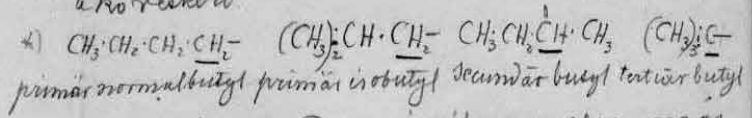 *) CH₃·CH₂·CH₂·CH₂– (CH₃)₂:CH·CH₂– CH₃·CH₂·CH·CH₃ (CH₃)₃:C–
primär normalbutyl primär isobutyl secundär butyl tertiär butyl